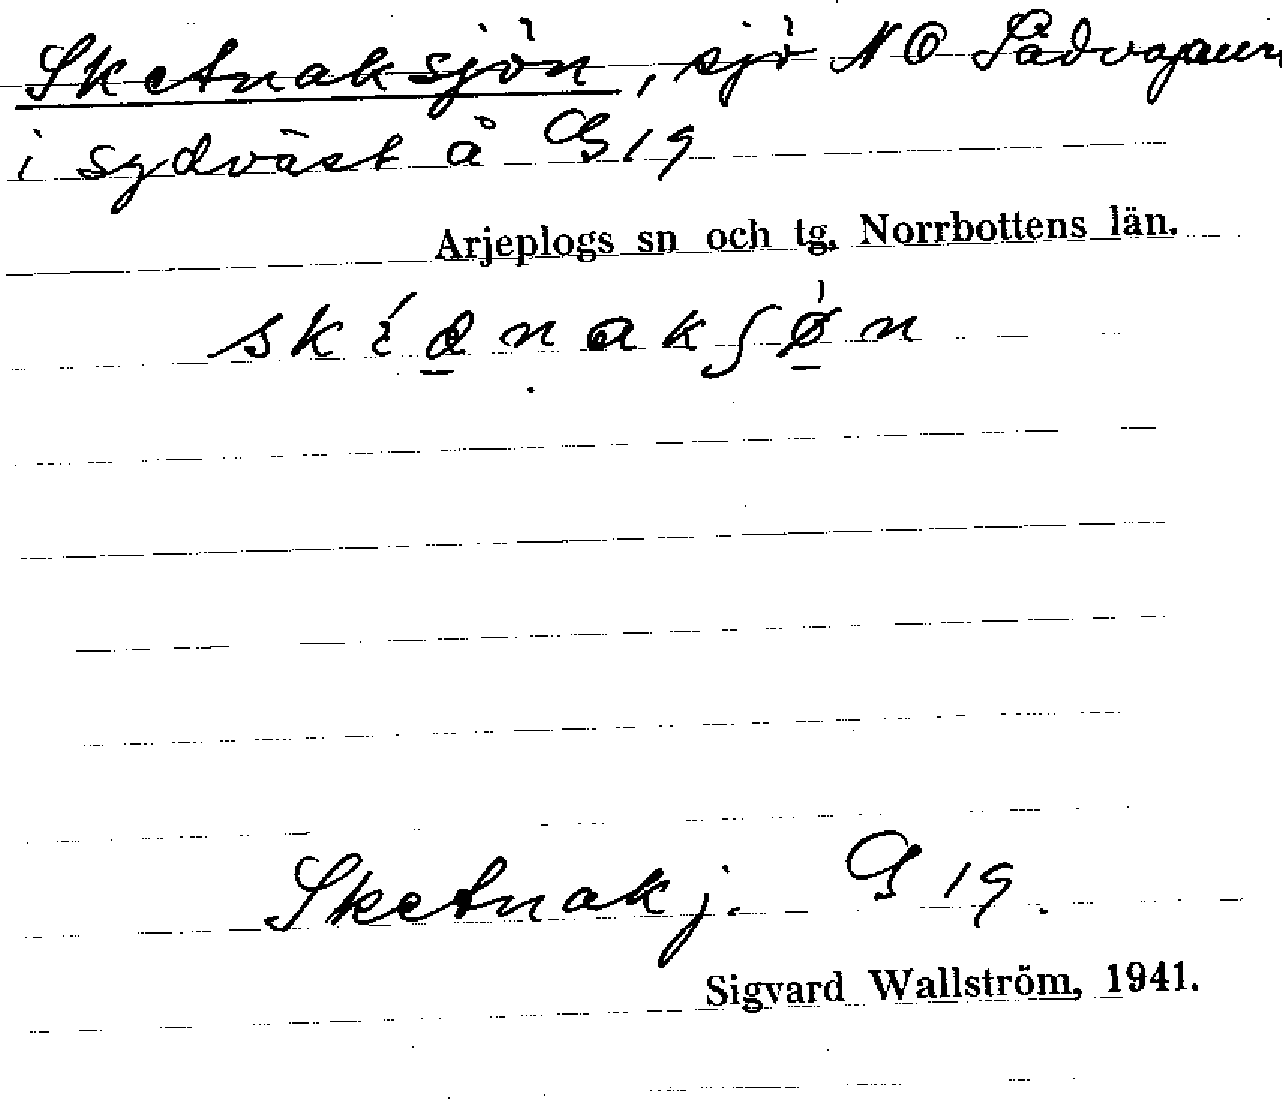 Sketnaksjön, sjö NO Sädvajaur
i sydväst å G 19
Arjeplogs sn och tg. Norrbottens län.
Sketnakj. G 19.
Sigvard Wallström, 1941.